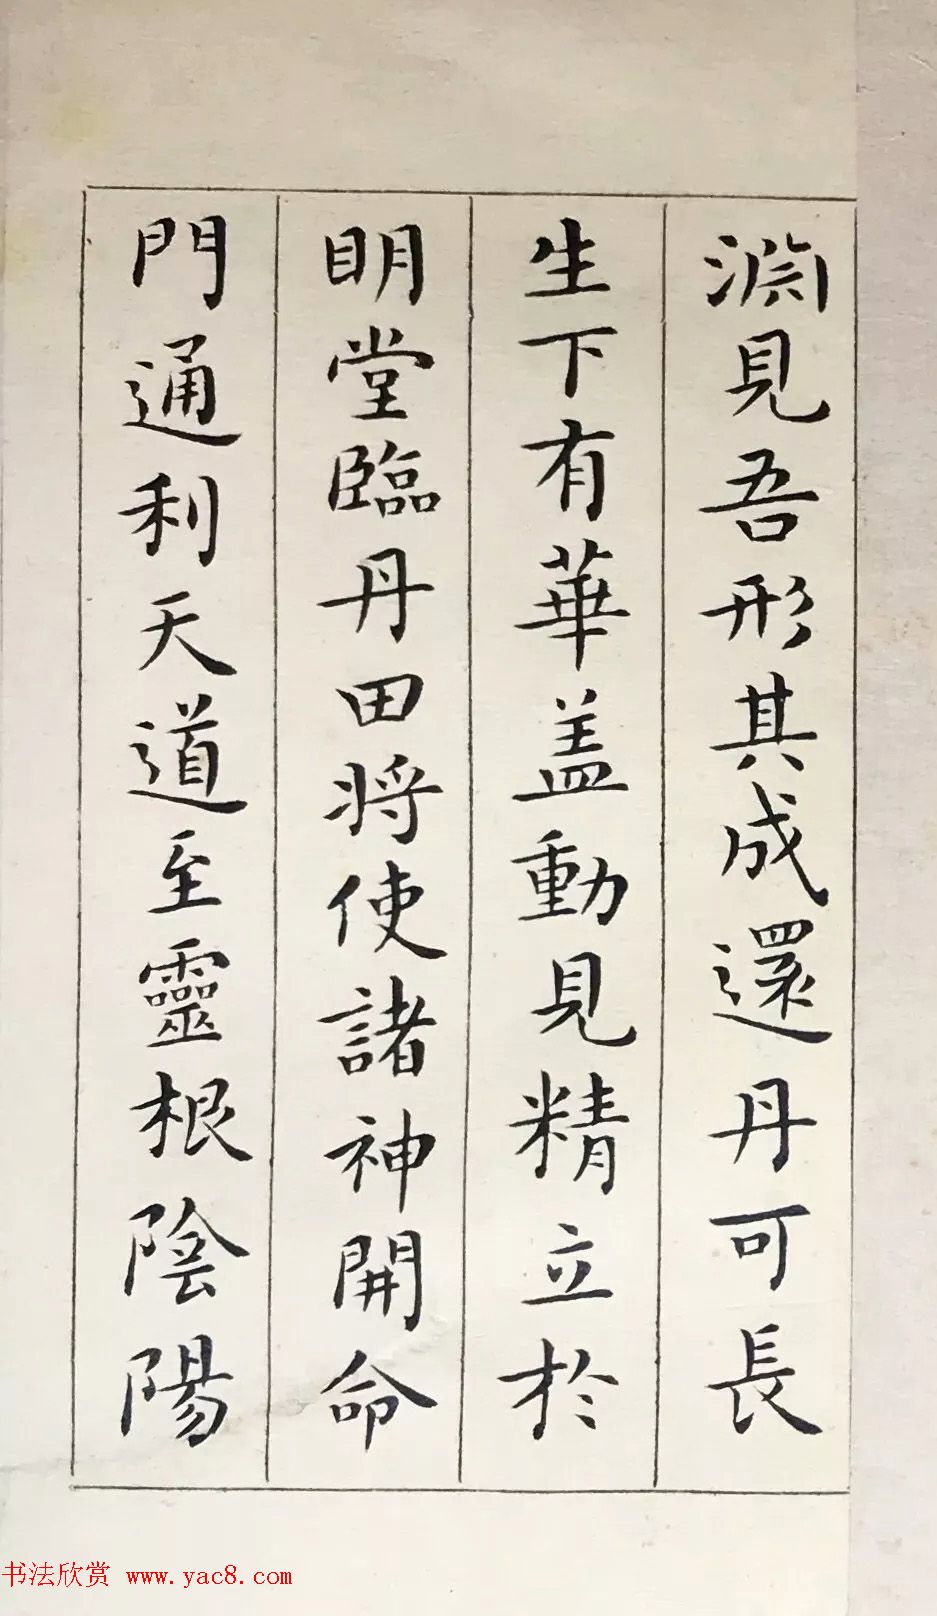 淵見吾形其成還丹可長
生下有華盖動見精立於
明堂臨丹田将使諸神開命
門通利天道至靈根陰陽
书法欣赏 www.yac8.com